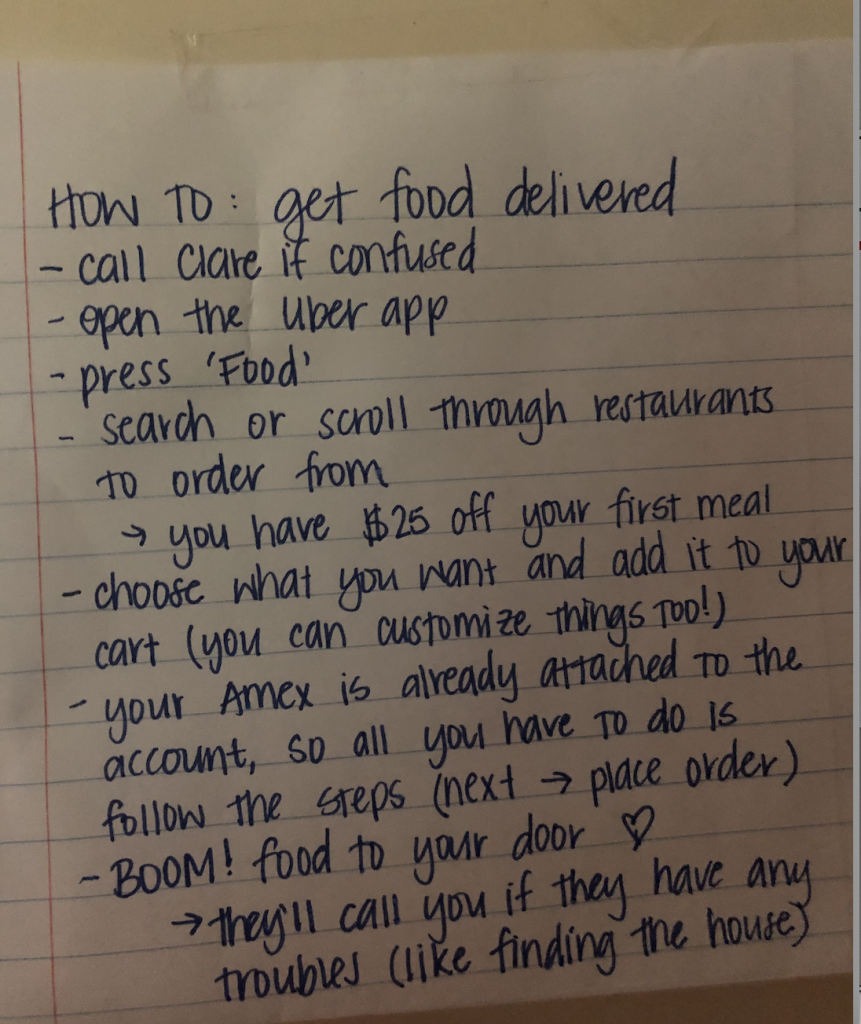 HOW TO: get food delivered
- call Clare if confused
- open the Uber app
- press 'Food'
- search or scroll through restaurants
to order from
→ you have $25 off your first meal
- choose what you want and add it to your
cart (you can customize things TOO!)
- your Amex is already attached to the
account, so all you have to do is
follow the steps (next → place order)
- BOOM! food to your door ♡
→ they'll call you if they have any
troubles (like finding the house)